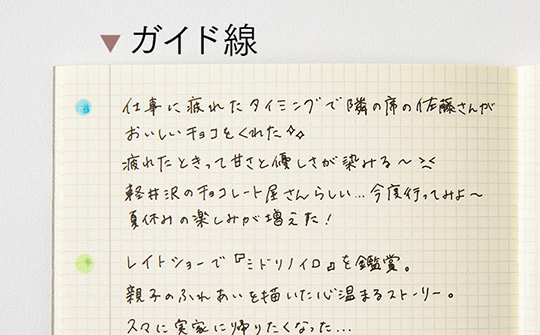 ▼ ガイド線
仕事に疲れたタイミングで隣の席の佐藤さんが
おいしいチョコをくれた✧✧
疲れたときって甘さと優しさが染みる〜
軽井沢のチョコレート屋さんらしい…今度行ってみよ〜
夏休みの楽しみが増えた!
レイトショーで『ミドリノイロ』を鑑賞。
親子のふれあいを描いた心温まるストーリー。
スマに実家に帰りたくなった…